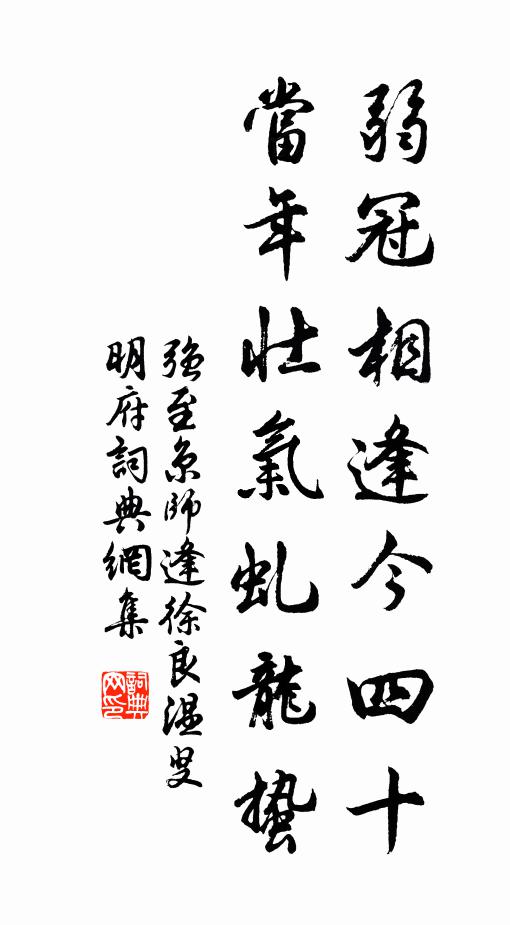 弱冠相逢今四十
當年壯氣虬龍蟄
強至京師逢徐良溫叟
明府詞典網集
詞典網印